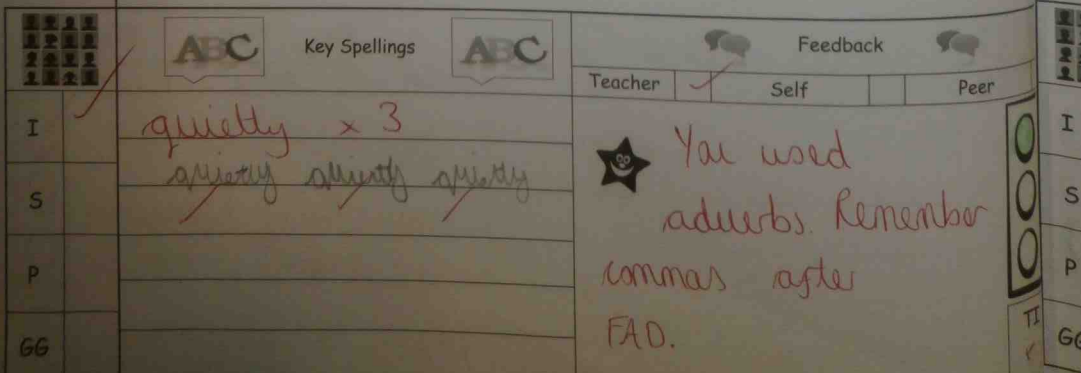 ABC Key Spellings ABC
Feedback
Teacher ✓ Self Peer
I ✓
quietly x 3
quietly quietly quietly
S
P
GG
You used
adverbs. Remember
commas after
FAD.
TI
I
S
P
GG